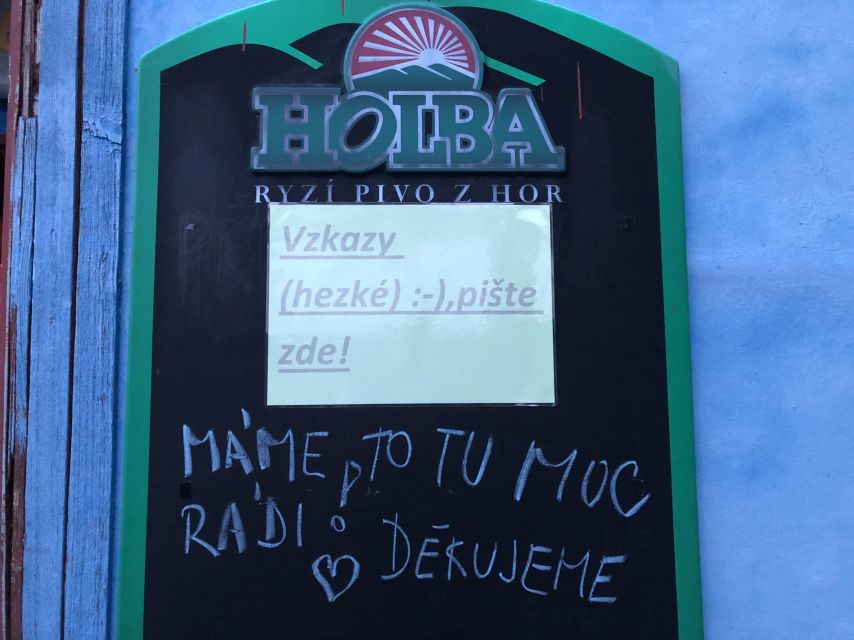 HOLBA
RYZÍ PIVO Z HOR
Vzkazy
(hezké) :-),pište
zde!
MÁME TO TU MOC
RÁDI
♡ DĚKUJEME